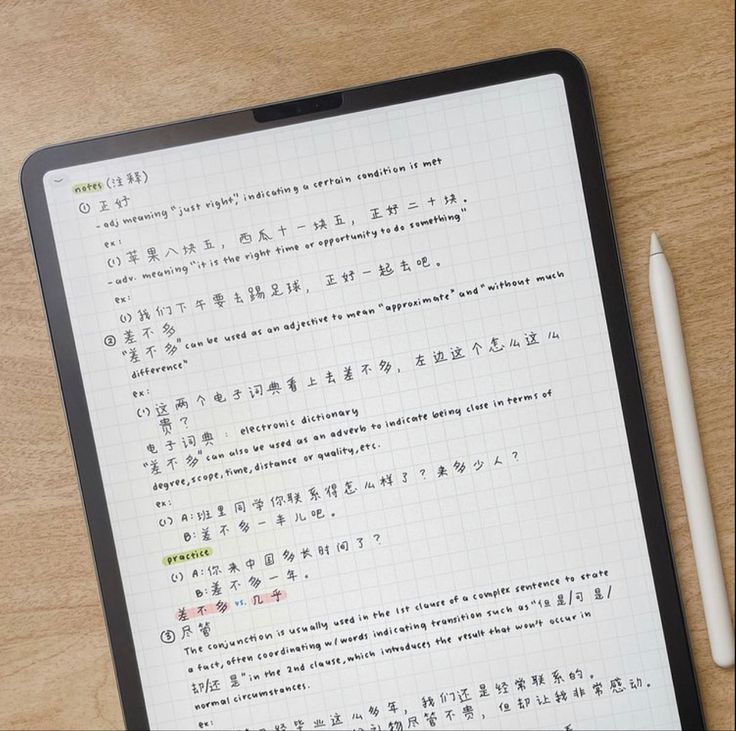 notes (注释)
① 正好
- adj meaning "just right", indicating a certain condition is met
ex:
(1) 苹果八块五，西瓜十一块五，正好二十块。
- adv. meaning "it is the right time or opportunity to do something"
ex:
(1) 我们下午要去踢足球，正好一起去吧。
② 差不多
"差不多" can be used as an adjective to mean "approximate" and "without much
difference"
ex:
(1) 这两个电子词典看上去差不多，左边这个怎么这么
贵？
电子词典: electronic dictionary
"差不多" can also be used as an adverb to indicate being close in terms of
degree, scope, time, distance or quality, etc.
ex:
(1) A: 班里同学你联系得怎么样了？来多少人？
B: 差不多一半儿吧。
practice
(1) A: 你来中国多长时间了？
B: 差不多一年。
差不多 vs. 几乎
③ 尽管
The conjunction is usually used in the 1st clause of a complex sentence to state
a fact, often coordinating w/ words indicating transition such as "但是/可是/
却/还是" in the 2nd clause, which introduces the result that won't occur in
normal circumstances.
ex:
毕业这么多年，我们还是经常联系的。
礼物尽管不贵，但却让我非常感动。